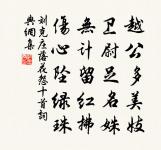 越公多美妓
卫尉足名姝
無计留红拂
傷心坠绿珠
刘克庄落花怨十首詞
典網集